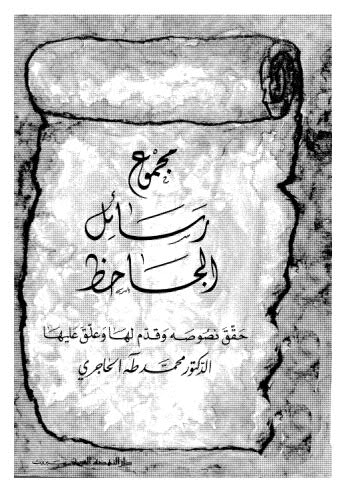 مجموع
رسائل
الجاحظ
حقّق نصوصه وقدّم لها وعلّق عليها
الدكتور محمد طه الحاجري
دار النهضة العربية